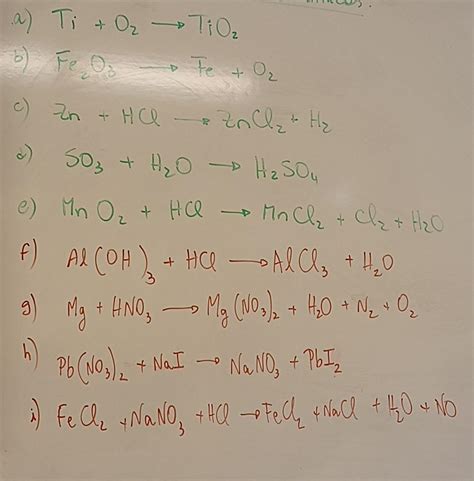 a) Ti + O₂ → TiO₂
b) Fe₂O₃ → Fe + O₂
c) Zn + HCl → ZnCl₂ + H₂
d) SO₃ + H₂O → H₂SO₄
e) MnO₂ + HCl → MnCl₂ + Cl₂ + H₂O
f) Al(OH)₃ + HCl → AlCl₃ + H₂O
g) Mg + HNO₃ → Mg(NO₃)₂ + H₂O + N₂ + O₂
h) Pb(NO₃)₂ + NaI → NaNO₃ + PbI₂
i) FeCl₂ + NaNO₃ + HCl → FeCl₂ + NaCl + H₂O + NO